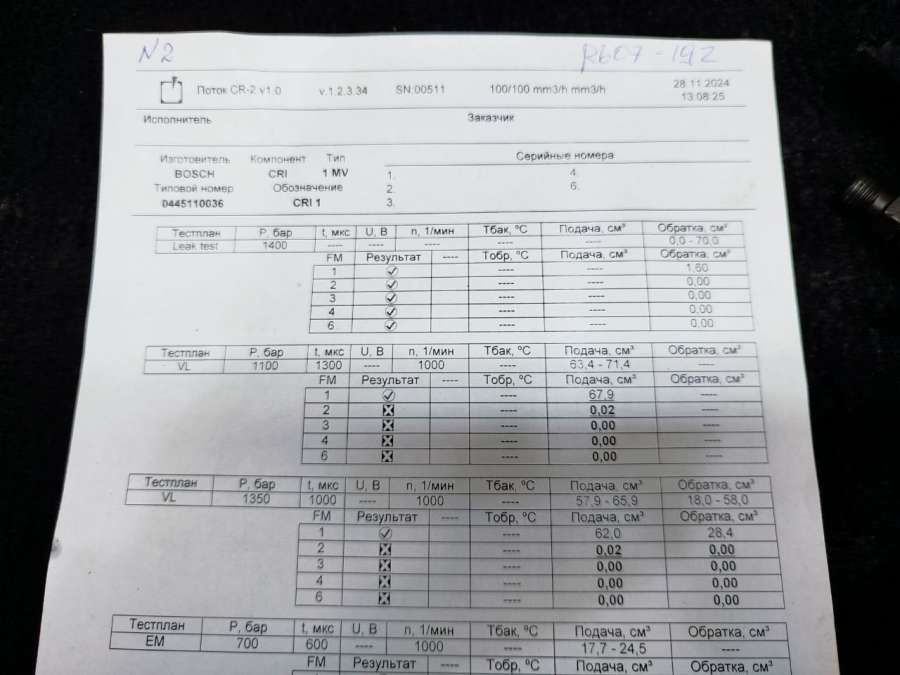 N2 R607-192
Поток CR-2 v1.0 v.1.2.3.34 SN:00511 100/100 mm3/h mm3/h 28.11.2024
13:08:25
Исполнитель Заказчик
Изготовитель Компонент Тип Серийные номера
BOSCH CRI 1 MV 1. 4.
Типовой номер Обозначение 2. 6.
0445110036 CRI 1 3.
Тестплан P, бар t, мкс U, В n, 1/мин Тбак, ºС Подача, см³ Обратка, см³
Leak test 1400 ---- ---- ---- ---- ---- 0,0 - 70,0
FM Результат ---- Тобр, ºС Подача, см³ Обратка, см³
1 ---- ---- 1,60
2 ---- ---- 0,00
3 ---- ---- 0,00
4 ---- ---- 0,00
6 ---- ---- 0,00
Тестплан P, бар t, мкс U, В n, 1/мин Тбак, ºС Подача, см³ Обратка, см³
VL 1100 1300 ---- 1000 ---- 63,4 - 71,4 ----
FM Результат ---- Тобр, ºС Подача, см³ Обратка, см³
1 ---- 67,9 ----
2 ---- 0,02 ----
3 ---- 0,00 ----
4 ---- 0,00 ----
6 ---- 0,00 ----
Тестплан P, бар t, мкс U, В n, 1/мин Тбак, ºС Подача, см³ Обратка, см³
VL 1350 1000 ---- 1000 ---- 57,9 - 65,9 18,0 - 58,0
FM Результат ---- Тобр, ºС Подача, см³ Обратка, см³
1 ---- 62,0 28,4
2 ---- 0,02 0,00
3 ---- 0,00 0,00
4 ---- 0,00 0,00
6 ---- 0,00 0,00
Тестплан P, бар t, мкс U, В n, 1/мин Тбак, ºС Подача, см³ Обратка, см³
EM 700 600 ---- 1000 ---- 17,7 - 24,5 ----
FM Результат ---- Тобр, ºС Подача, см³ Обратка, см³